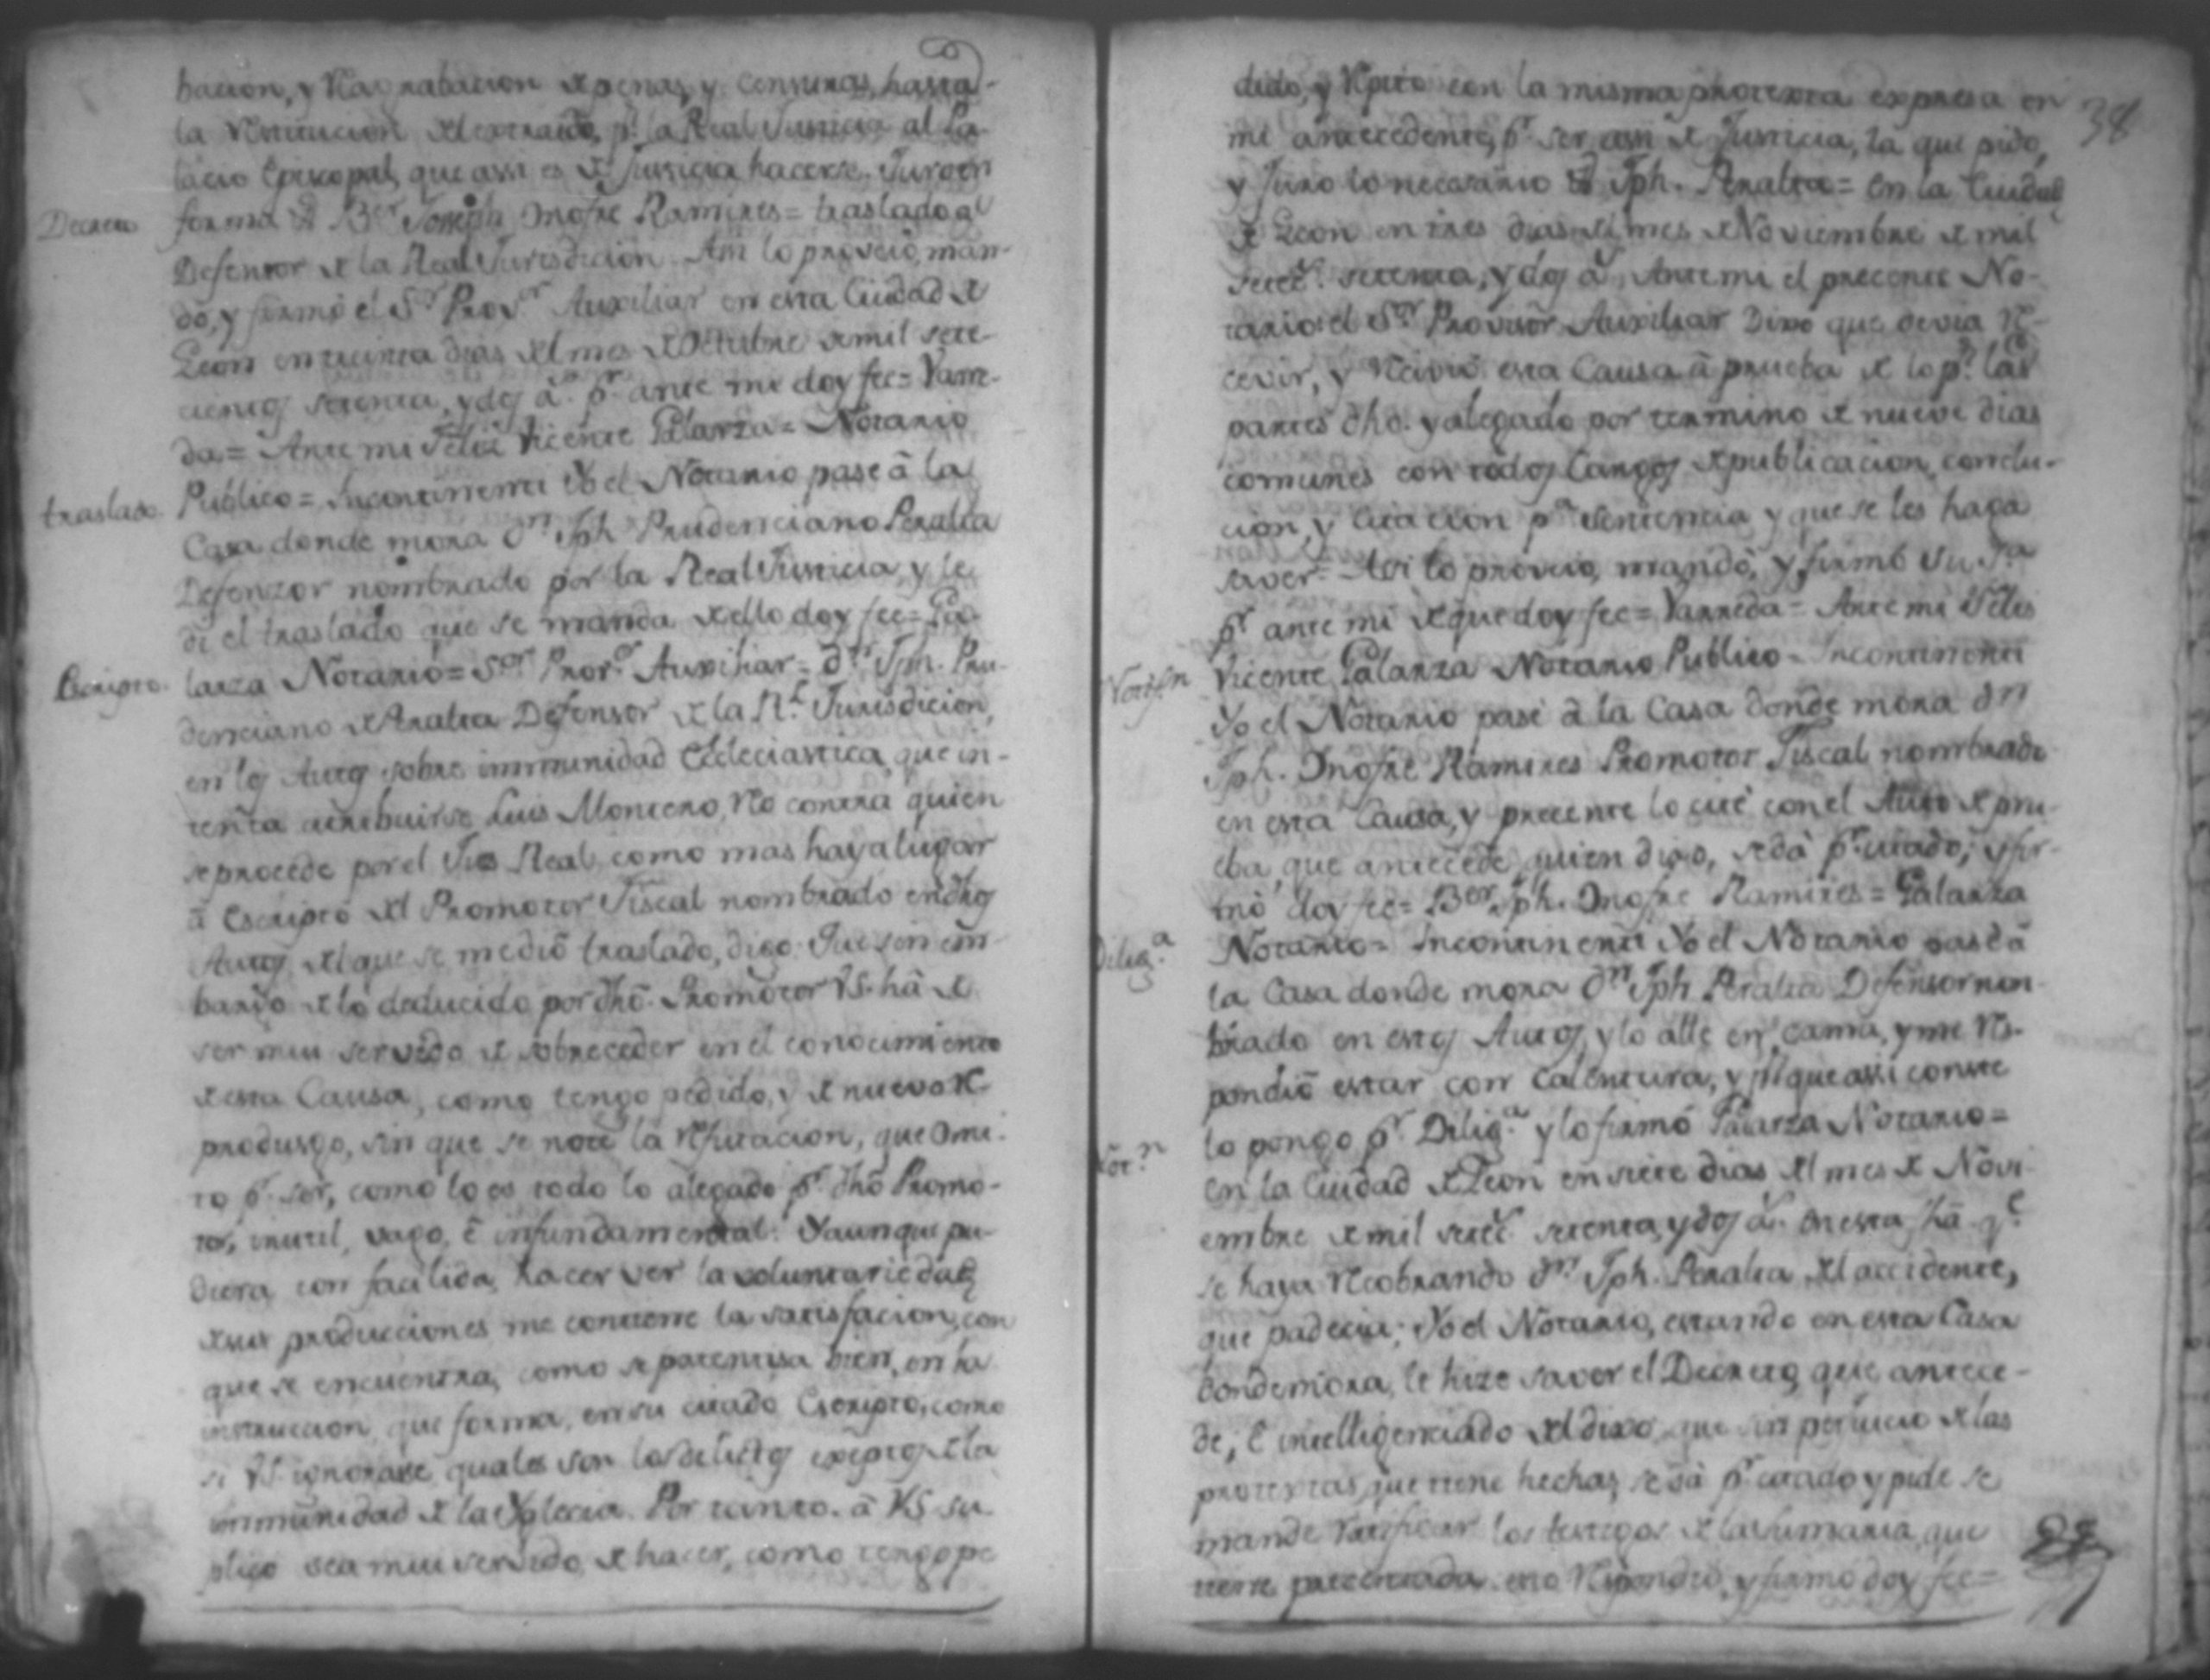 bacion, y reagrabacion de penas, y censuras, hasta
la restitucion del extraido, pr. la Real Justicia al Pa-
lacio Episcopal, que assi es de Justicia hacerse. Juro en
Decreto forma &. Ber. Joseph Onofre Ramires = traslado al
Defensor de la Real Jurisdicion. Asi lo proveió, man-
dó, y firmó el Sr. Provr. Auxiliar en esta Ciudad de
Leon en treinta dias del mes de Octubre de mil sete-
cientos setenta, y dos as. pr. ante mi doy fee = Varre-
da = Ante mi Felis Vicente Palarza = Notario
traslado. Publico = Incontinenti Yo el Notario pasé â la
Casa donde mora Dn. Jph Prudenciano Peralta
Defenzor nombrado por la Real Justicia, y le
di el traslado que se manda de ello doy fee = Pa-
Escripto. larza Notario = Sor. Provr. Auxiliar = Dn. Jph. Pru-
denciano de Peralta Defensor de la Rl. Jurisdicion,
en los Autos sobre immunidad Ecleciastica, que in-
tenta atribuirse Luis Montero, Reo contra quien
se procede por el Jues Real, como mas haya lugar
â Escripto del Promotor Fiscal nombrado en dhos
Autos, del que se me dió traslado, digo: Que sin em-
bargo de lo deducido por dhô. Promotor VS. hâ de
ser mui servido de sobreceder en el conocimiento
de esta Causa, como tengo pedido, y de nuevo re-
produsgo, sin que se note la refutacion, que omi-
to pr. ser, como lo es todo lo alegado pr. dhô Promo-
tor, inutil, vago, ê infundamental. Y aunque pu-
diera con facilida, hacer ver la voluntariedad
de sus producciones me contiene la satisfacion, con
que se encuentra, como se patentisa bien, en la
instruccion que forma, en su citado Escripto, como
si VS. ignorase quales son los delictos exêptos de la
immunidad de la Yglecia. Por tanto. â VS. su-
plico sea mui servido de hacer, como tengo pe-
38
dido, y repito con la misma protexta expresa en
mi antecedente, pr. ser assi de Justicia, la que pido,
y Juro lo necesario &. Jph. Peralta = En la Ciudad
de Leon en tres dias del mes de Noviembre de mil
setecs. setenta, y dos as. Ante mi el precente No-
tario: el Sor. Provisor Auxiliar Dixo que devia re-
cevir, y recivió esta Causa â prueba de lo pr. las
partes dho. y alegado por termino de nueve dias
comunes con todos Cargos de publicacion, conclu-
cion, y citacion pa. sentencia y que se les haga
saver = Asi lo proveió, mandó, y firmó su Sa.
pr. ante mi de que doy fee = Varreda = Ante mi Felis
Notifn Vicente Palarza Notario Publico = Incontinenti
Yo el Notario pasé â la Casa donde mora Dn
Jph. Onofre Ramires Promotor Fiscal nombrado
en esta Causa, y precente lo cité con el Auto de pru-
eba, que antecede, quien dixo, se dá pr. citado; y fir-
mó doy fee = Ber. Jph. Onofre Ramires = Palarza
Diliga. Notario = Incontinenti Yo el Notario pasé â
la Casa donde mora Dn. Jph Peralta Defensor nom-
brado en estos Autos, y lo allé en cama, y me res-
pondió estar con calentura, y pa. que assi conste
lo pongo pr. Diliga. y lo firmó Palarza Notario =
Notn. En la Ciudad de Leon en siete dias del mes de Novi-
embre de mil setecs. setenta, y dos as. En esta fha. qe.
se haya recobrando Dn. Jph. Peralta del accidente,
que padecia; Yo el Notario, estando en esta Casa
donde mora, le hize saver el Decreto, que antece-
de, ê intelligenciado del dixo: que sin perjuicio de las
protextas, que tiene hechas, se dá pr. citado y pide se
mande ratificar los testigos de la Sumaria, que
tiene precentada. esto respondió, y firmó doy fee =